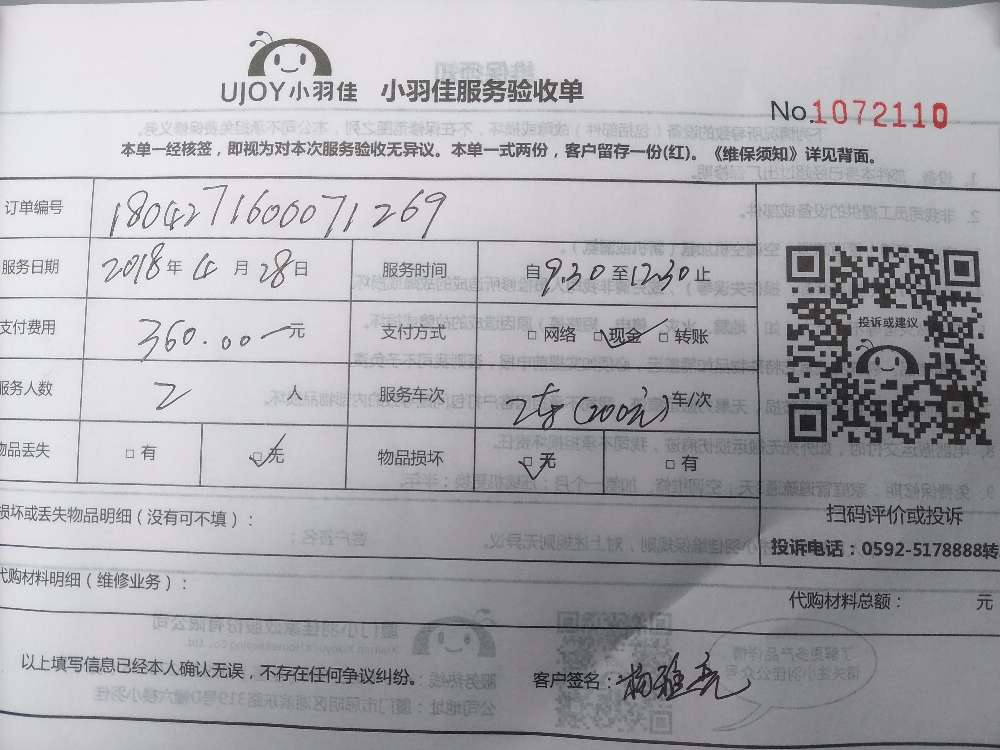 UJOY小羽佳 小羽佳服务验收单
No.1072110
本单一经核签，即视为对本次服务验收无异议。本单一式两份，客户留存一份(红)。《维保须知》详见背面。
订单编号 180427160007 1269
服务日期 2018年4月28日 服务时间 自9.30至12.30止
支付费用 360.00元 支付方式 □网络 □现金 □转账
投诉或建议
服务人数 2人 服务车次 (200元)车/次
物品丢失 □有 □无 物品损坏 □无 □有
损坏或丢失物品明细（没有可不填）：
扫码评价或投诉
投诉电话：0592-5178888转
代购材料明细（维修业务）：
代购材料总额： 元
以上填写信息已经本人确认无误，不存在任何争议纠纷。 客户签名：杨雅亮